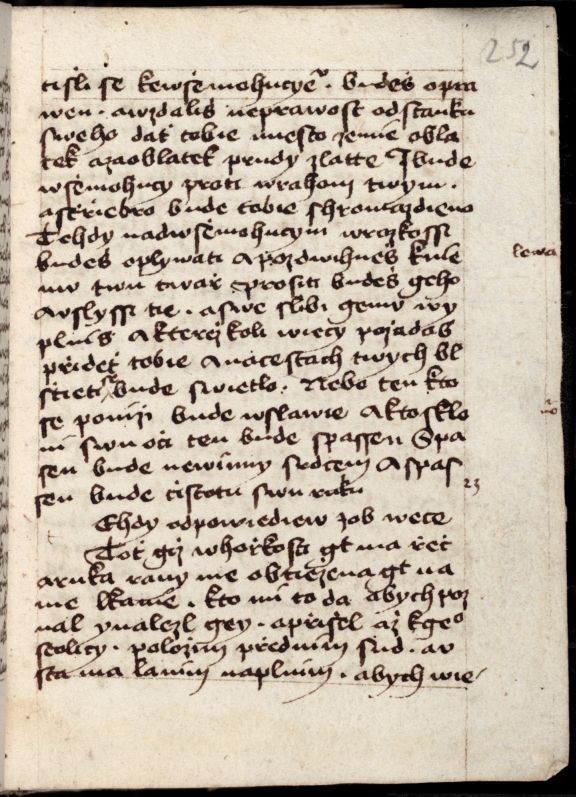 252
tisli se kewsemohucye̊. budeš opra
wen. awzdališ neprawost odstanku
sweho dat tobie miesto zemie obla
tek azaoblatek prudy zlatte Ibude
wšemohucy proti wrahom twym.
astriebro bude tobie shromazdieno
Tehdy nadwšemohucym wrozkossi
budeš oplywati Apozdwihneš kule
mu twu twař prositi budeš geho
Auslyssi tie. aswe slibi gemu wy
plniš Akterežkoli wiecy požadaš
přideť tobie Anacestach twych bl
štieti bude swietlo. Nebo ten kto
se poniži bude wslawie Aktosklo
ni swu oči ten bude spassen Spa
sen bude newinny srdcem Aspas
sen bude čistotu swu ruku
lewa
23
Ehdy odpowiediew zob wece
Toť giž whořkosti gt ma řeč
aruka rany me obtiežena gt na
me lkanie. kto mi to da abych poz
nal ynalezl gey. apřišel až kge̊
stolicy. položim předním sud. au
sta ma lanim naplnim. abych wie